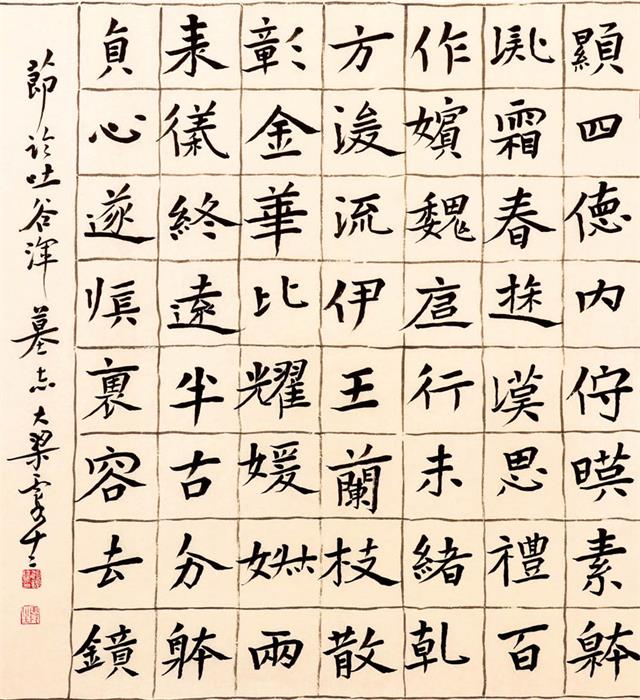 顯四德内暎素
霜春遊漢思禮百
作嬪魏行未緒乾
方流伊王蘭枝散
彰金華比耀媛兩
来儀終遠半古分躰
貞心遂慎裏容去鏡
節临吐谷渾墓志大梁